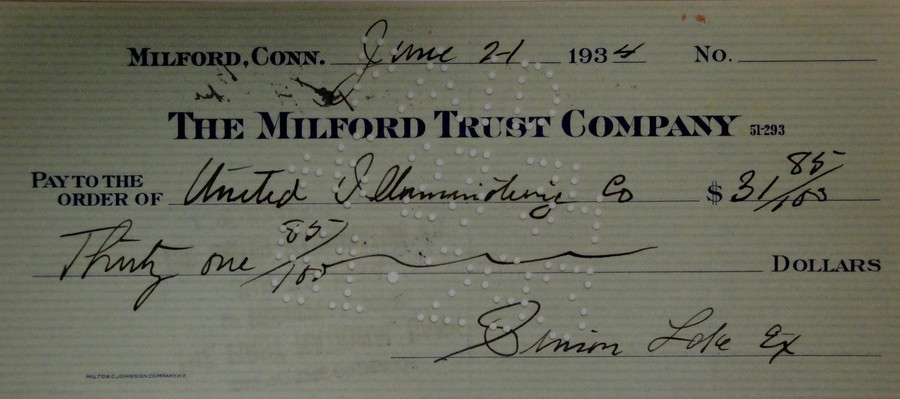 MILFORD, CONN. June 21 1934 No.
THE MILFORD TRUST COMPANY 51-293
PAY TO THE ORDER OF United Illuminating Co $ 31 85/100
Thirty one 85/100 DOLLARS
Simon Lake Ex